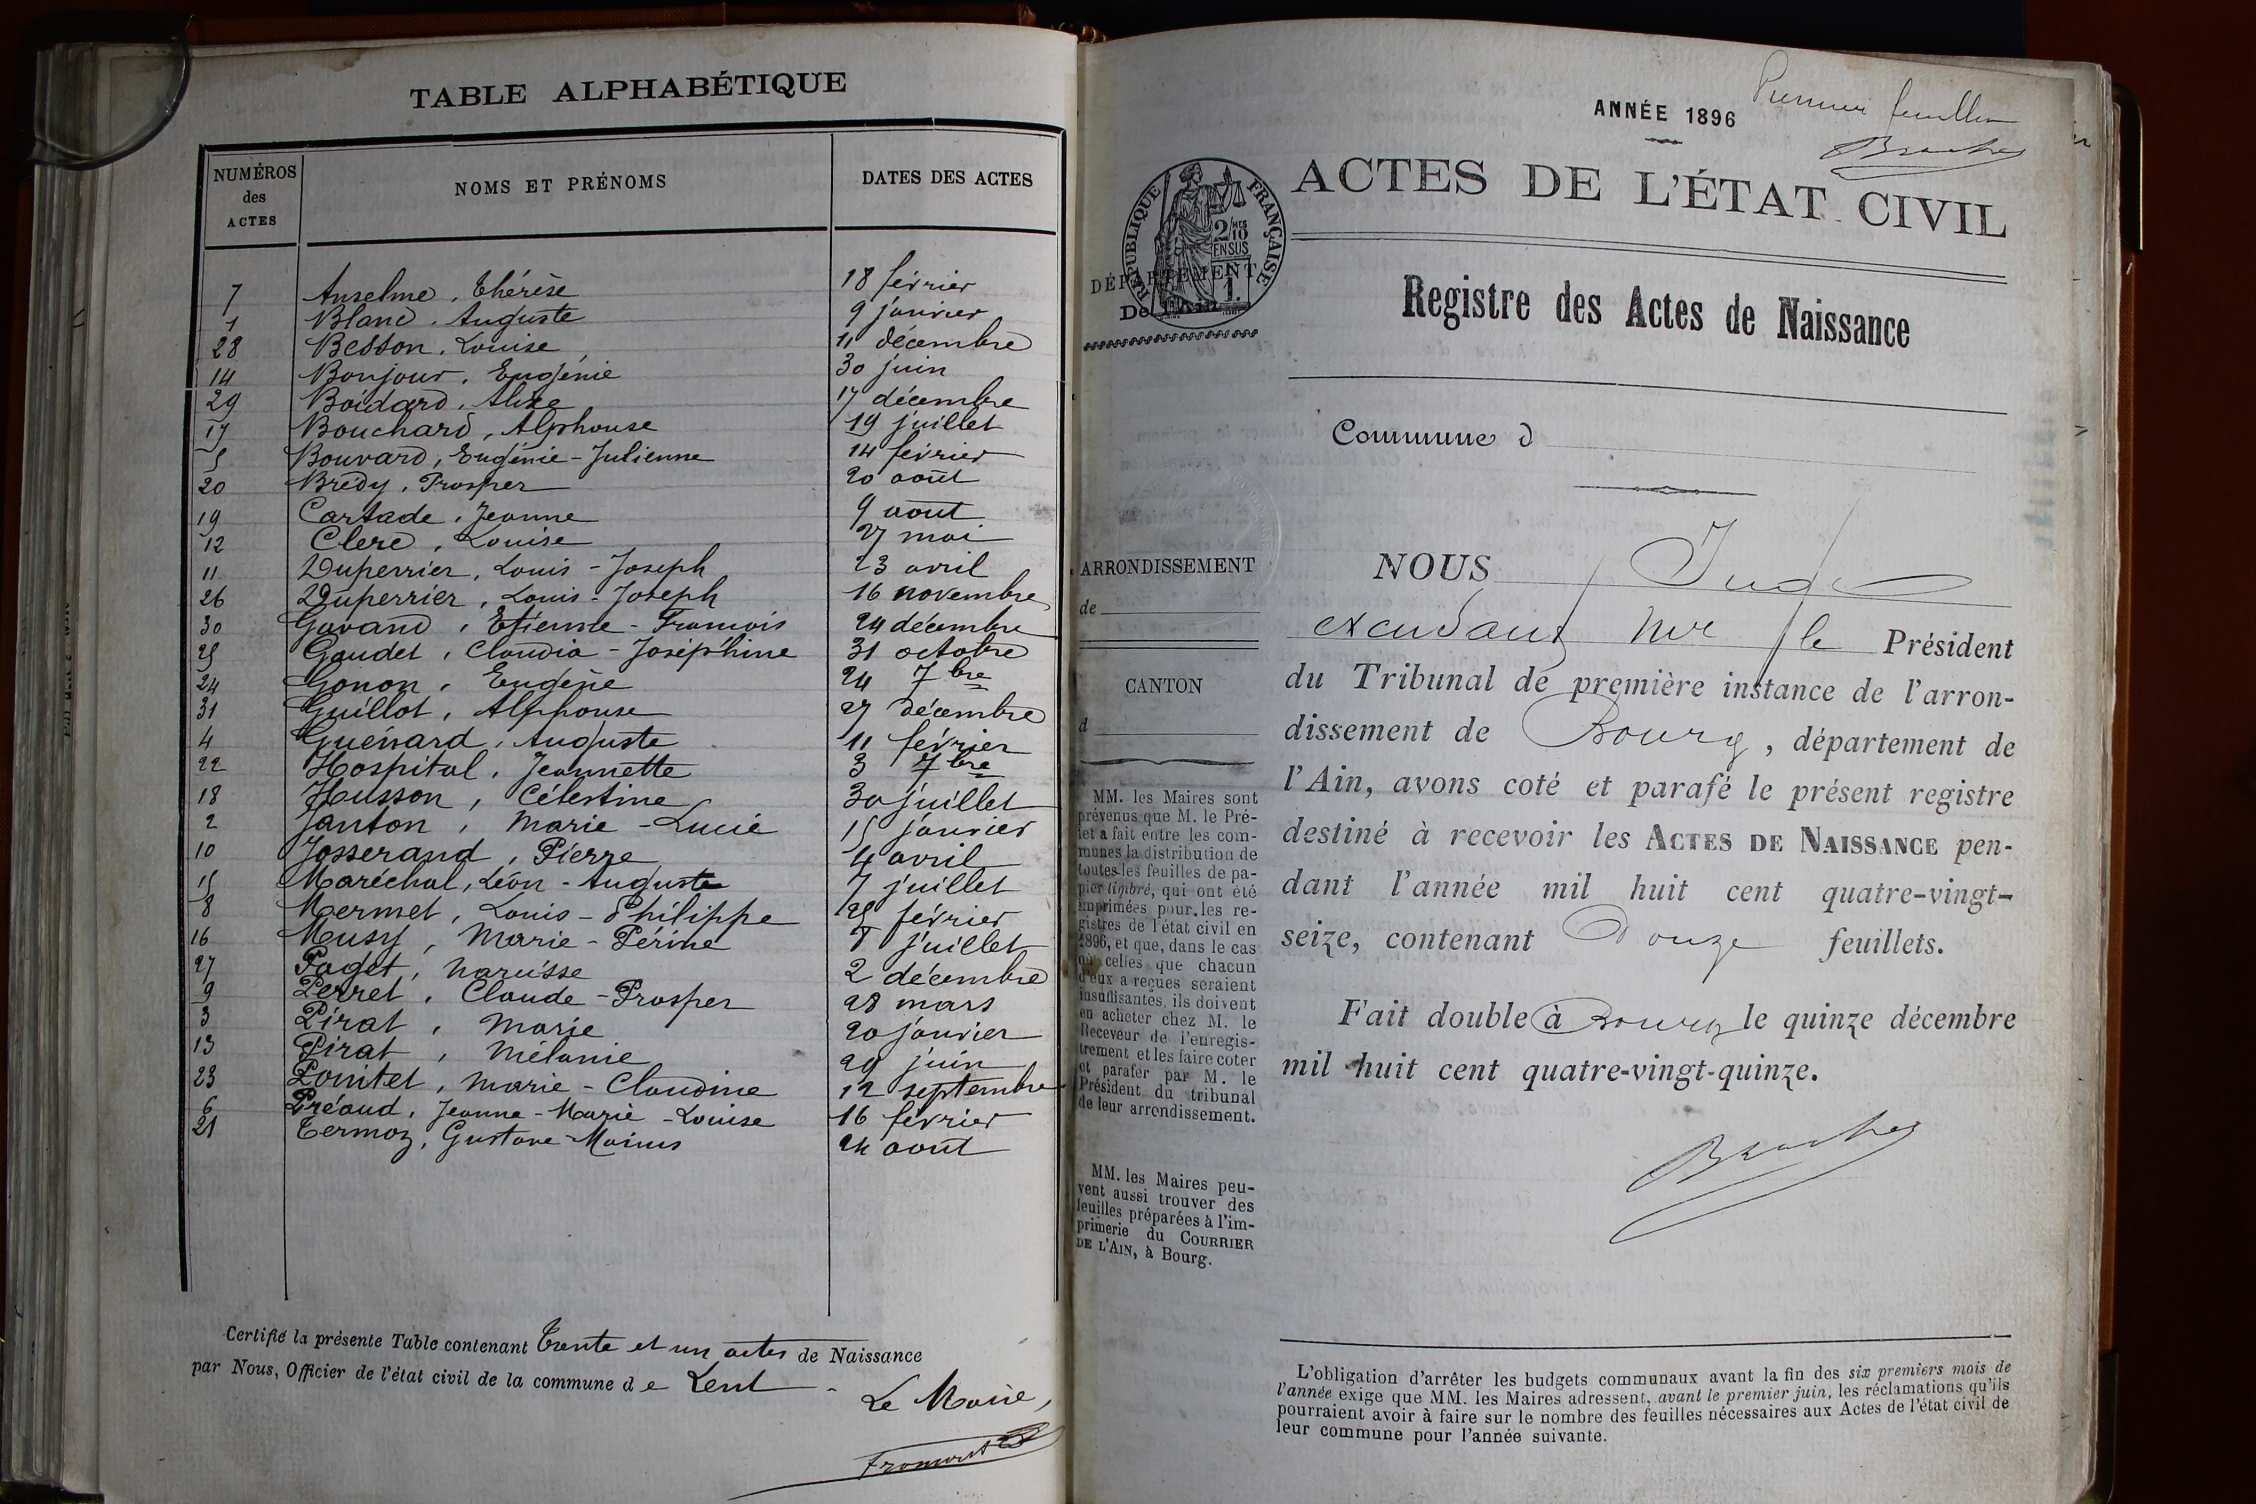 TABLE ALPHABÉTIQUE
NUMÉROS des ACTES NOMS ET PRÉNOMS DATES DES ACTES
7 Anselme, Thérèse 18 février
1 Blanc, Auguste 9 janvier
28 Besson, Louise 11 décembre
14 Bonjour, Eugénie 30 juin
29 Boidard, Alize 17 décembre
17 Bouchard, Alphonse 19 juillet
5 Bouvard, Eugénie-Julienne 14 février
20 Brédy, Prosper 20 août
19 Cartade, Jeanne 9 août
12 Clerc, Louise 27 mai
11 Duperrier, Louis-Joseph 23 avril
26 Duperrier, Louis-Joseph 16 novembre
30 Gavand, Etienne-François 24 décembre
25 Gaudet, Claudia-Joséphine 31 octobre
24 Gonon, Eugénie 24 7bre
31 Guillot, Alphonse 27 décembre
4 Guénard, Auguste 11 février
22 Hospital, Jeannette 3 7bre
18 Husson, Célestine 30 juillet
2 Janton, Marie-Lucie 15 janvier
10 Josserand, Pierre 4 avril
15 Maréchal, Léon-Auguste 7 juillet
8 Mermet, Louis-Philippe 25 février
16 Musy, Marie-Périne 8 juillet
27 Paget, Narcisse 2 décembre
9 Perret, Claude-Prosper 28 mars
3 Pirat, Marie 20 janvier
13 Pirat, Mélanie 29 juin
23 Poncet, Marie-Claudine 12 septembre
6 Préaud, Jeanne-Marie-Louise 16 février
21 Termoz, Gustave-Marius 24 août
Certifié la présente Table contenant Trente et un actes de Naissance
par Nous, Officier de l'état civil de la commune de Lent.
Le Maire,
ANNÉE 1896
Premier feuillet
ACTES DE L'ÉTAT CIVIL
RÉPUBLIQUE FRANÇAISE
2/10 EN SUS
1.
DÉPARTEMENT
De l'Ain
Registre des Actes de Naissance
Commune d
ARRONDISSEMENT
de
CANTON
d
MM. les Maires sont
prévenus que M. le Pré-
fet a fait entre les com-
munes la distribution de
toutes les feuilles de pa-
pier timbré, qui ont été
imprimées pour les re-
gistres de l'état civil en
1896, et que, dans le cas
où celles que chacun
d'eux a reçues seraient
insuffisantes, ils doivent
en acheter chez M. le
Receveur de l'enregis-
trement et les faire coter
et parafer par M. le
Président du tribunal
de leur arrondissement.
MM. les Maires peu-
vent aussi trouver des
feuilles préparées à l'im-
primerie du COURRIER
DE L'AIN, à Bourg.
NOUS Juge
le Président
du Tribunal de première instance de l'arron-
dissement de Bourg, département de
l'Ain, avons coté et parafé le présent registre
destiné à recevoir les ACTES DE NAISSANCE pen-
dant l'année mil huit cent quatre-vingt-
seize, contenant Douze feuillets.
Fait double à Bourg le quinze décembre
mil huit cent quatre-vingt-quinze.
L'obligation d'arrêter les budgets communaux avant la fin des six premiers mois de
l'année exige que MM. les Maires adressent, avant le premier juin, les réclamations qu'ils
pourraient avoir à faire sur le nombre des feuilles nécessaires aux Actes de l'état civil de
leur commune pour l'année suivante.